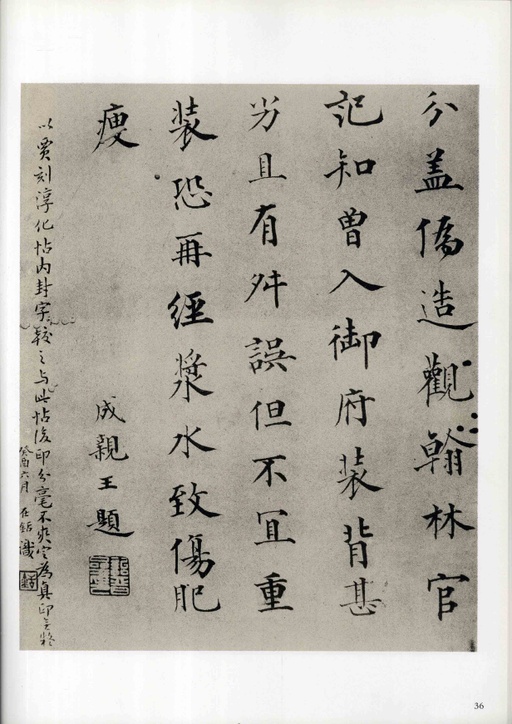 分盖偽造觀翰林官
記知曾入御府裝背甚
劣且有舛誤但不冝重
裝恐再經漿水致傷肥
瘦
成親王題
以賈刻淳化帖内封字較之与此帖後印分毫不爽定為真印無疑
癸酉六月
識
36